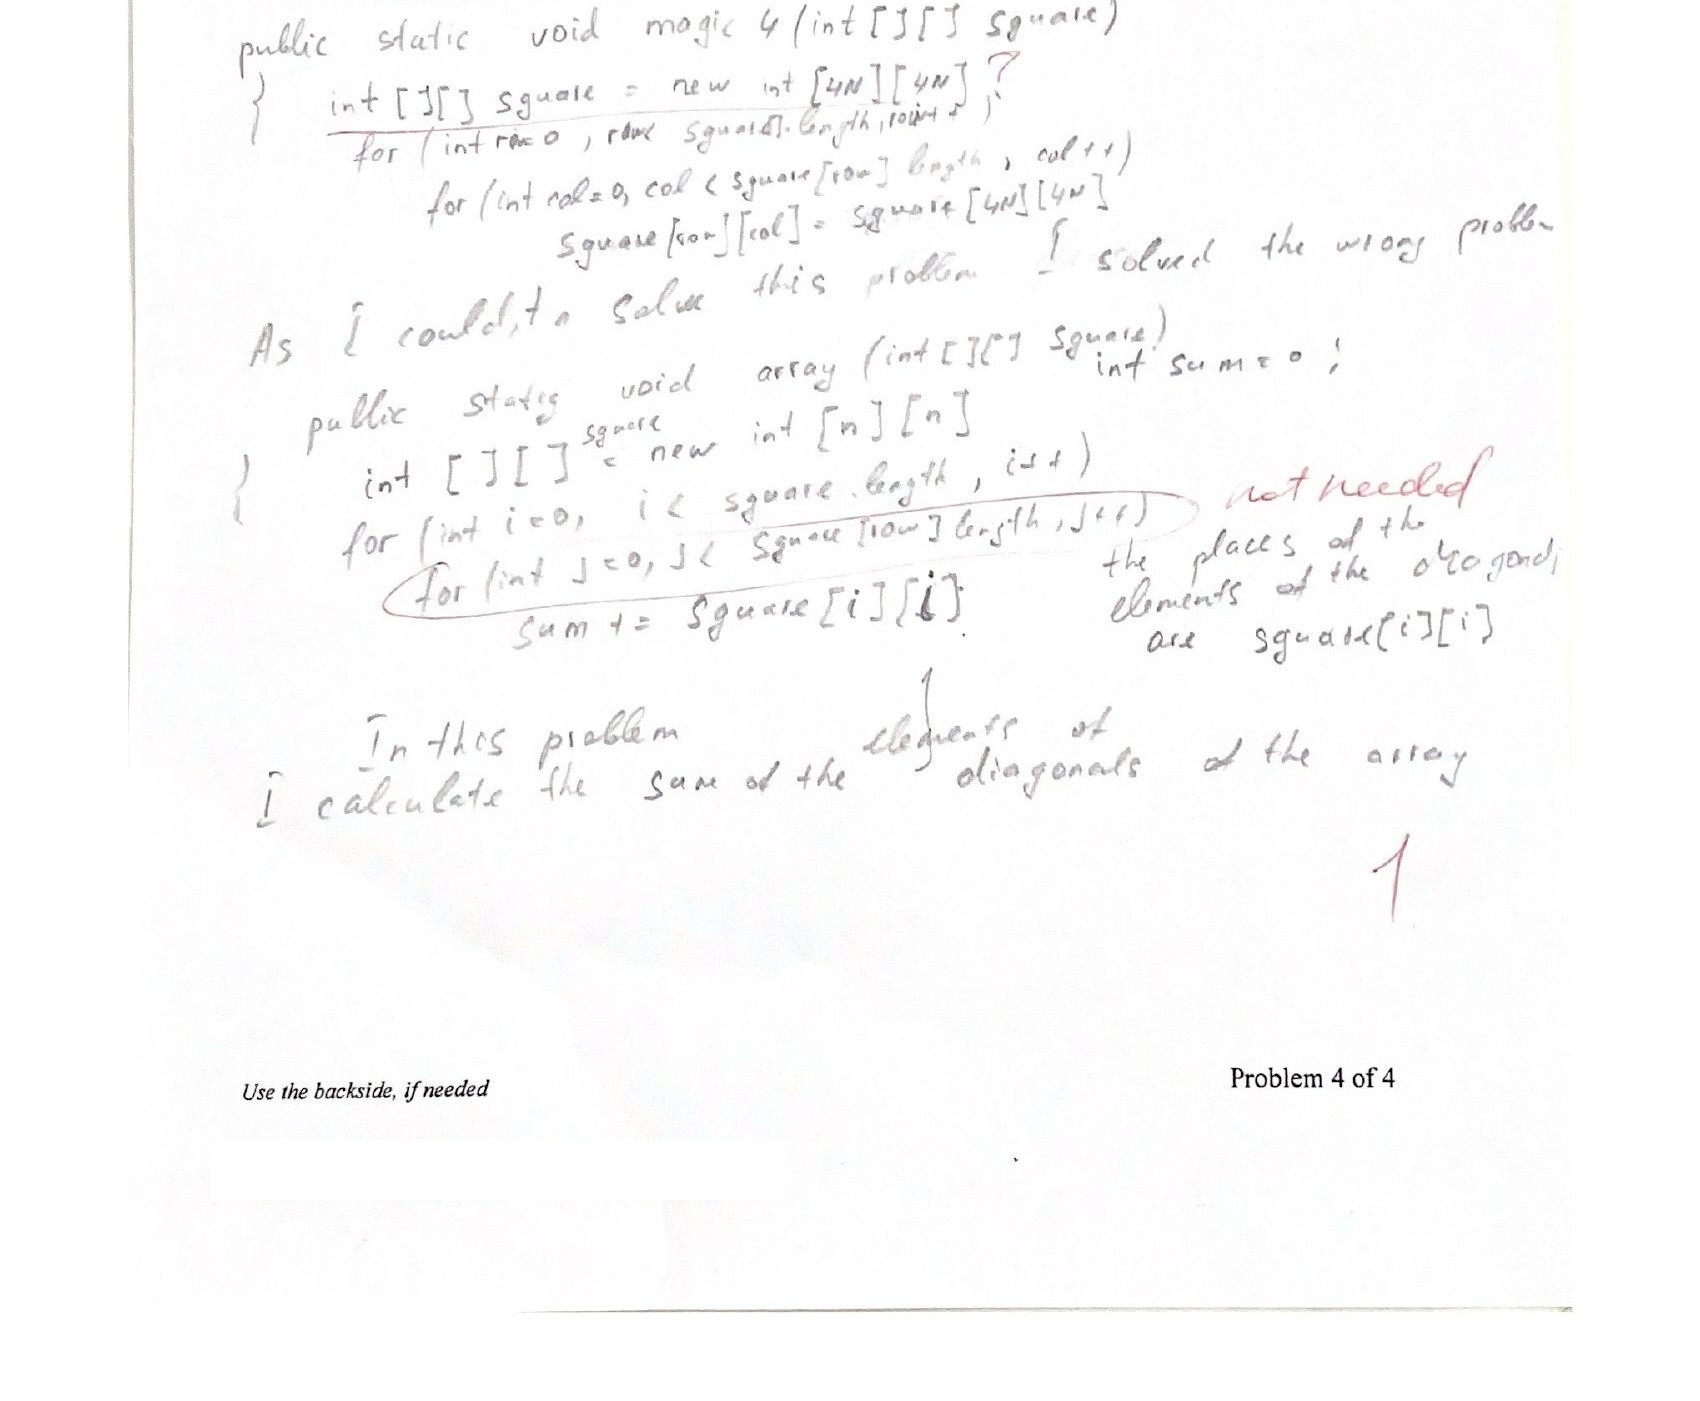 public static void magic 4 (int [][] square)
{ int [][] square = new int [4N][4N] ?
for (int row=0, row< square[].length, row++)
for (int col=0, col < square[row] length, col++)
square[row][col] = square [4N][4N]
As I could,tn solve this problem I solved the wrong problem
public static void array (int [][] square)
int sum = 0;
{ int [][] square = new int [n][n]
for (int i=0, i< square.length, i++)
for (int j=0, j< square [row] length, j++) not needed
sum += square[i][i];
the places of the
elements of the diagonal,
are square[i][i]
In this problem
I calculate the sum of the elements of
diagonals of the array
1
Use the backside, if needed
Problem 4 of 4